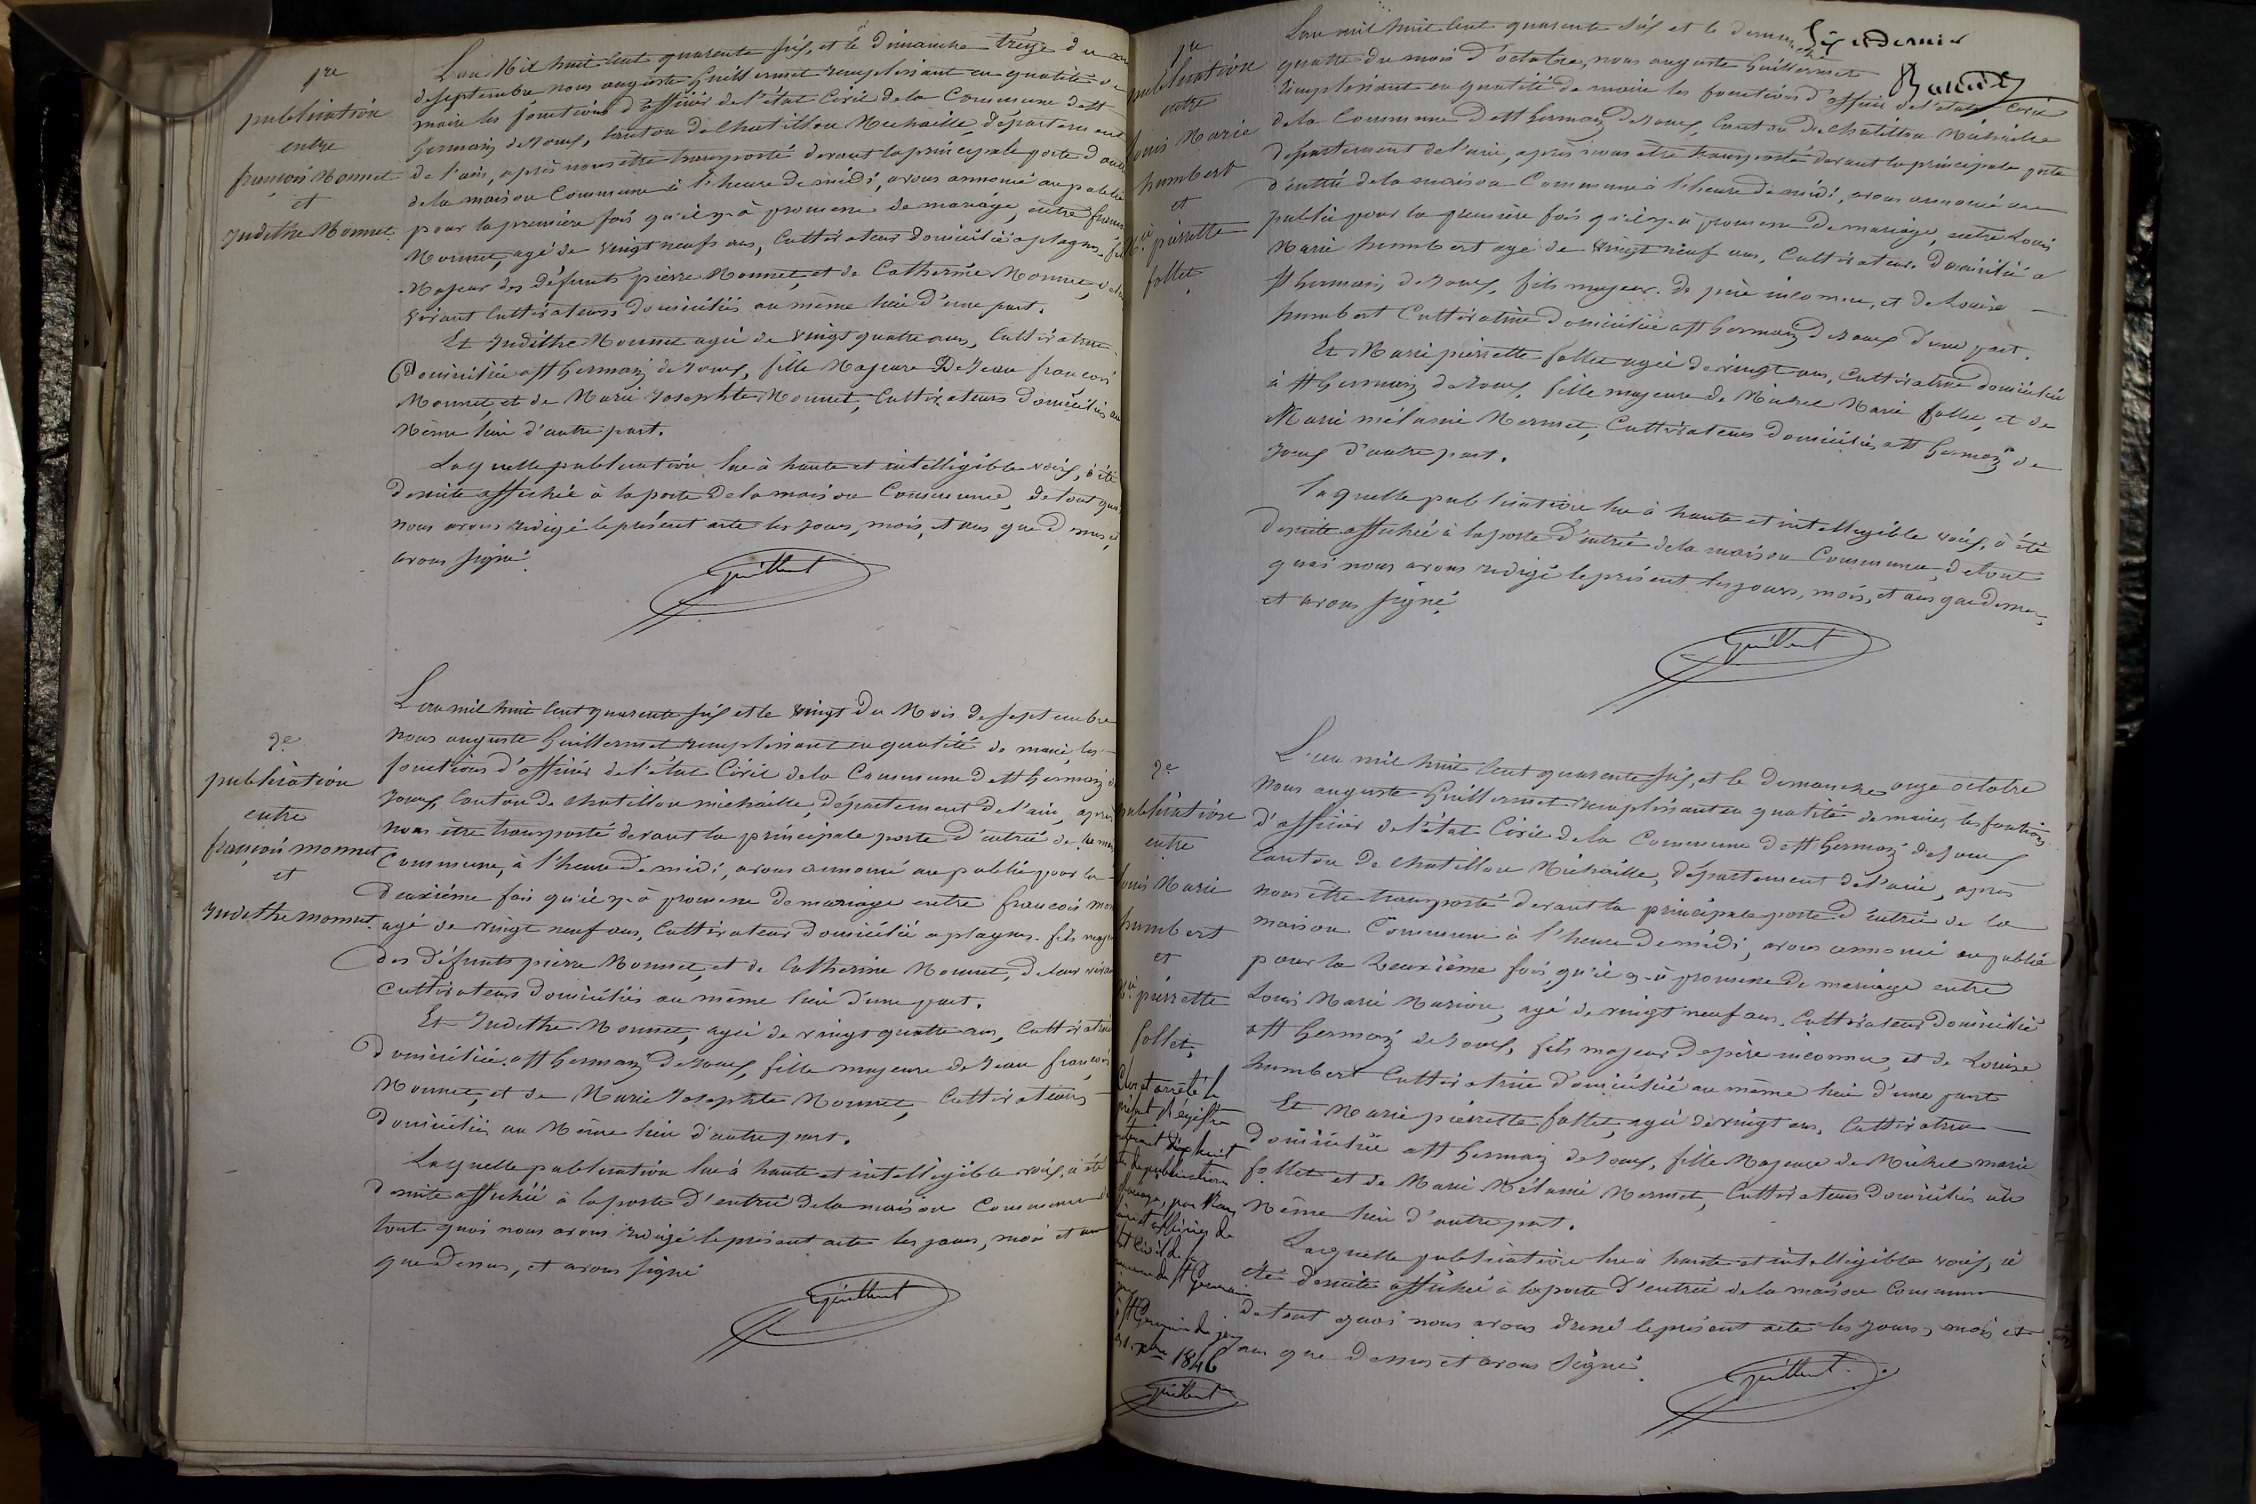 1re
publication
entre
françois Monnet
et
Judithe Monnet.
L'an Mil huit cent quarente six, et le Dimanche treize du
de septembre nous auguste Guillermet remplissant en qualité de
maire les fonctions d'officier de l'état Civil de la Commune de St
Germain de Joux, Canton de Chatillon Michaille, département
de l'ain, après nous être transporté devant la principale porte d'
de la maison Commune à l'heure de midi, avons annoncé au public
pour la première fois qu'il y à promesse de mariage, entre
Monnet, agé de vingt neuf ans, Cultivateur domicilié a plagnes
Majeur des défunts pierre Monnet, et de Catherine Monnet,
vivant Cultivateurs domiciliés au même lieu d'une part.
Et Judithe Monnet agée de vingt quatre ans, Cultivatrice
Domiciliée a St Germain de Joux, fille Majeure De Jean françois
Monnet, et de Marie Josephte Monnet, Cultivateurs domiciliés au
Même lieu d'autre part.
Laquelle publication lue à haute et intelligible voix, à été
de suite affichée à la porte De la maison Commune, de tout
nous avons redigé le présent acte les jours, mois, et ans que dessus,
avons signé
Guillermet
2e
publication
entre
françois monnet
et
Judithe monnet.
L'an mil huit cent quarente six et le vingt du Mois de septembre
nous auguste Guillermet remplissant en qualité de maire, les
fonctions d'officier de l'état Civil de la Commune de St Germain de
Joux, Canton de chatillon michaille, département de l'ain, après
nous être transporté devant la principale porte d'entrée de la
Commune, à l'heure de midi, avons annoncé au public pour la
Deuxième fois qu'il y à promesse de mariage entre françois
agé de vingt neuf ans, Cultivateur domicilié a plagnes. fils
des défunts pierre Monnet, et de Catherine Monnet, de leur
Cultivateurs domiciliés au même lieu d'une part.
Et Judithe Monnet, agée de vingt quatre ans, Cultivatrice
Domiciliée. a St Germain de Joux, fille majeure de Jean françois
Monnet, et de Marie Josephte Monnet, Cultivateurs
Domiciliés au Même lieu d'autre part.
Laquelle publication lue à haute et intelligible voix, à été
de suite affichée à la porte d'entrée de la maison Commune
tout quoi nous avons redigé le présent acte les jours, mois et an
que Dessus, et avons signé
Guillermet
Six et Dernier
1re
publication
entre
Louis Marie
humbert
et
pierrette
follet.
L'an mil huit cent quarente six et le dimanche
quatre du mois d'octobre, nous auguste Guillermet
remplissant en qualité de maire les fonctions d'officier de l'état Civil
de la Commune de St Germain de Joux, Canton de chatillon Michaille
département de l'ain, après nous être transporté devant la principale porte
d'entrée de la maison Commune à l'heure de midi, avons annoncé au
public pour la première fois qu'il y à promesse de mariage, entre Louis
Marie humbert agé de vingt neuf ans, Cultivateur. Domicilié a
St Germain de Joux, fils majeur. de père inconnu, et de Louise
humbert Cultivatrice domiciliée a St Germain de Joux d'une part.
Et Marie pierrette follet agée de vingt ans, Cultivatrice domiciliée
à St Germain de Joux, fille majeure de Michel Marie follet, et de
Marie mélanie Mermet, Cultivateurs domiciliés a St Germain de
Joux d'autre part.
laquelle publication lue à haute et intelligible voix, à été
de suite affichée à la porte d'entrée de la maison Commune, de tout
quoi nous avons redigé le présent les jours, mois, et ans que dessus,
et avons signé
Guillermet
2e
publication
entre
Louis Marie
humbert
et
pierrette
follet,
L'an mil huit cent quarente six, et le dimanche onze octobre
Nous auguste Guillermet remplissant en qualité de maire, les fonctions
d'officier de l'état Civil de la Commune de St Germain de Joux
Canton de chatillon Michaille, département de l'ain, après
nous être transporté devant la principale porte d'entrée de la
maison Commune à l'heure de midi, avons annoncé au public
pour la deuxième fois, qu'il y à promesse de mariage entre
Louis Marie Marion, agé de vingt neuf ans, Cultivateur domicilié
a St Germain de Joux, fils majeur de père inconnu, et de Louise
humbert Cultivatrice domiciliée au même lieu d'une part
Et Marie pierrette follet, agée de vingt ans, Cultivatrice
domiciliée a St Germain de Joux, fille Majeure de Michel marie
follet et de Marie Mélanie Mermet, Cultivateurs domiciliés au
Même lieu d'autre part.
Laquelle publication lue à haute et intelligible voix, à
été de suite affichée à la porte d'entrée de la maison Commune
de tout quoi nous avons dressé le présent acte les jours, mois et
ans que dessus et avons signé
Guillermet
Clos et arrêté le
présent Régistre
contenant dix huit
de publication
de mariage, par Nous
officier de
l'état Civil de la
commune de St Germain
à St Germain de Joux
31 Xbre 1846
Guillermet